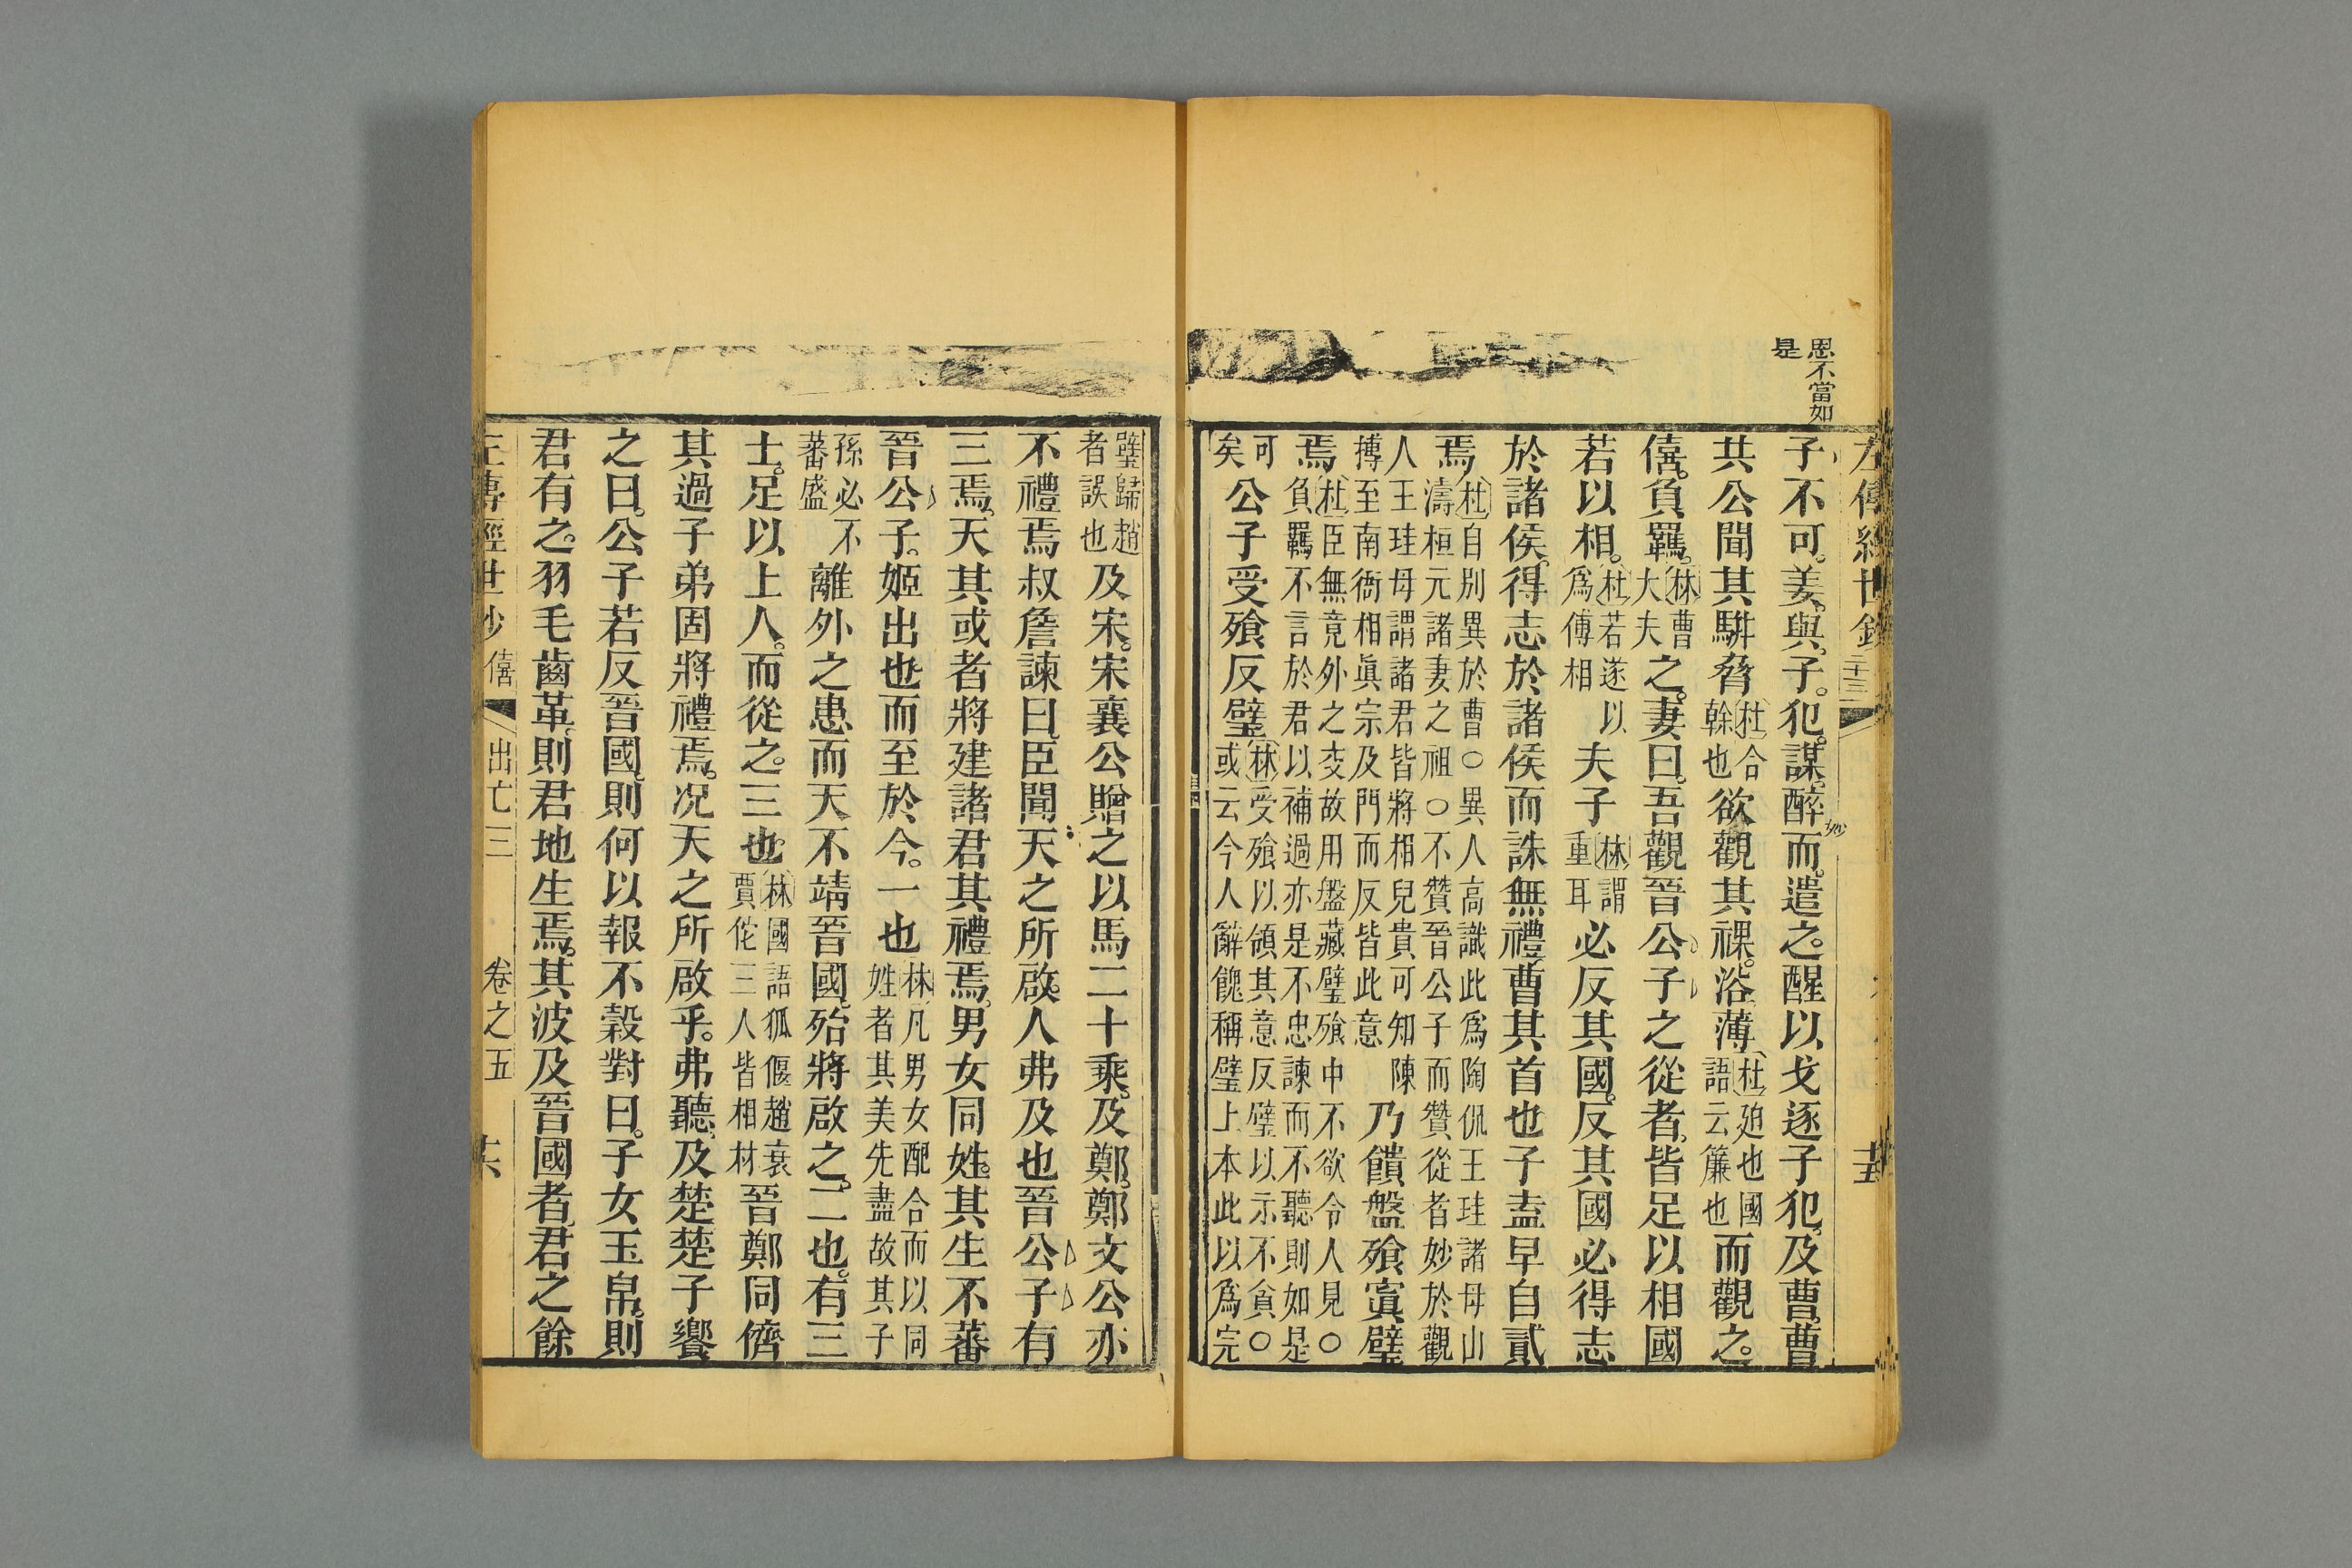 恩不當如
是
左傳經世鈔
二十三
子不可。姜與子。犯。謀。醉而。遣之。醒以戈逐子犯。及曹。曹
共公聞其駢脅 杜合
幹也 欲觀其裸。浴。薄 杜迫也國
語云簾也 而觀之。
僖。負羈。 林曹
大夫 之。妻曰。吾觀晉公子之從者。皆足以相國
若以相。 杜若遂以
爲傅相 夫子 林謂
重耳 必反其國。反其國必得志
於諸侯。得志於諸侯而誅無禮。曹其首也子盍早自貳
焉 杜自別異於曹○異人高識此爲陶侃王珪諸母山
濤桓元諸妻之祖○不贊晉公子而贊從者妙於觀
人王珪母謂諸君皆將相兒貴可知陳
摶至南衙相眞宗及門而反皆此意 乃饋盤飧寘璧
焉 杜臣無竟外之交故用盤藏璧飧中不欲令人見○
負羈不言於君以補過亦是不忠諫而不聽則如是
可
矣 公子受飧反璧 林受飧以領其意反璧以示不貪○
或云今人辭餽稱璧上本此以爲完
璧歸趙
者誤也 及宋。宋襄公贈之以馬二十乘。及鄭。鄭文公亦
不禮焉叔詹諫曰。臣聞天之所啟。人弗及也晉公子有
三焉。天其或者將建諸君其禮焉。男女同姓。其生不蕃
晉公子。姬出也而至於今。一也 林凡男女配合而以同
姓者其美先盡故其子
孫必不
蕃盛 離外之患而天不靖晉國。殆將啟之。二也。有三
士。足以上人。而從之。三也。 林國語狐偃趙衰
賈佗三人皆相材 晉鄭同儕
其過子弟固將禮焉。况天之所啟乎。弗聽。及楚楚子饗
之曰。公子若反晉國。則何以報不穀對曰。子女玉帛。則
君有之。羽毛齒革。則君地生焉。其波及晉國者。君之餘
左傳經世鈔 僖 出亡三 卷之五